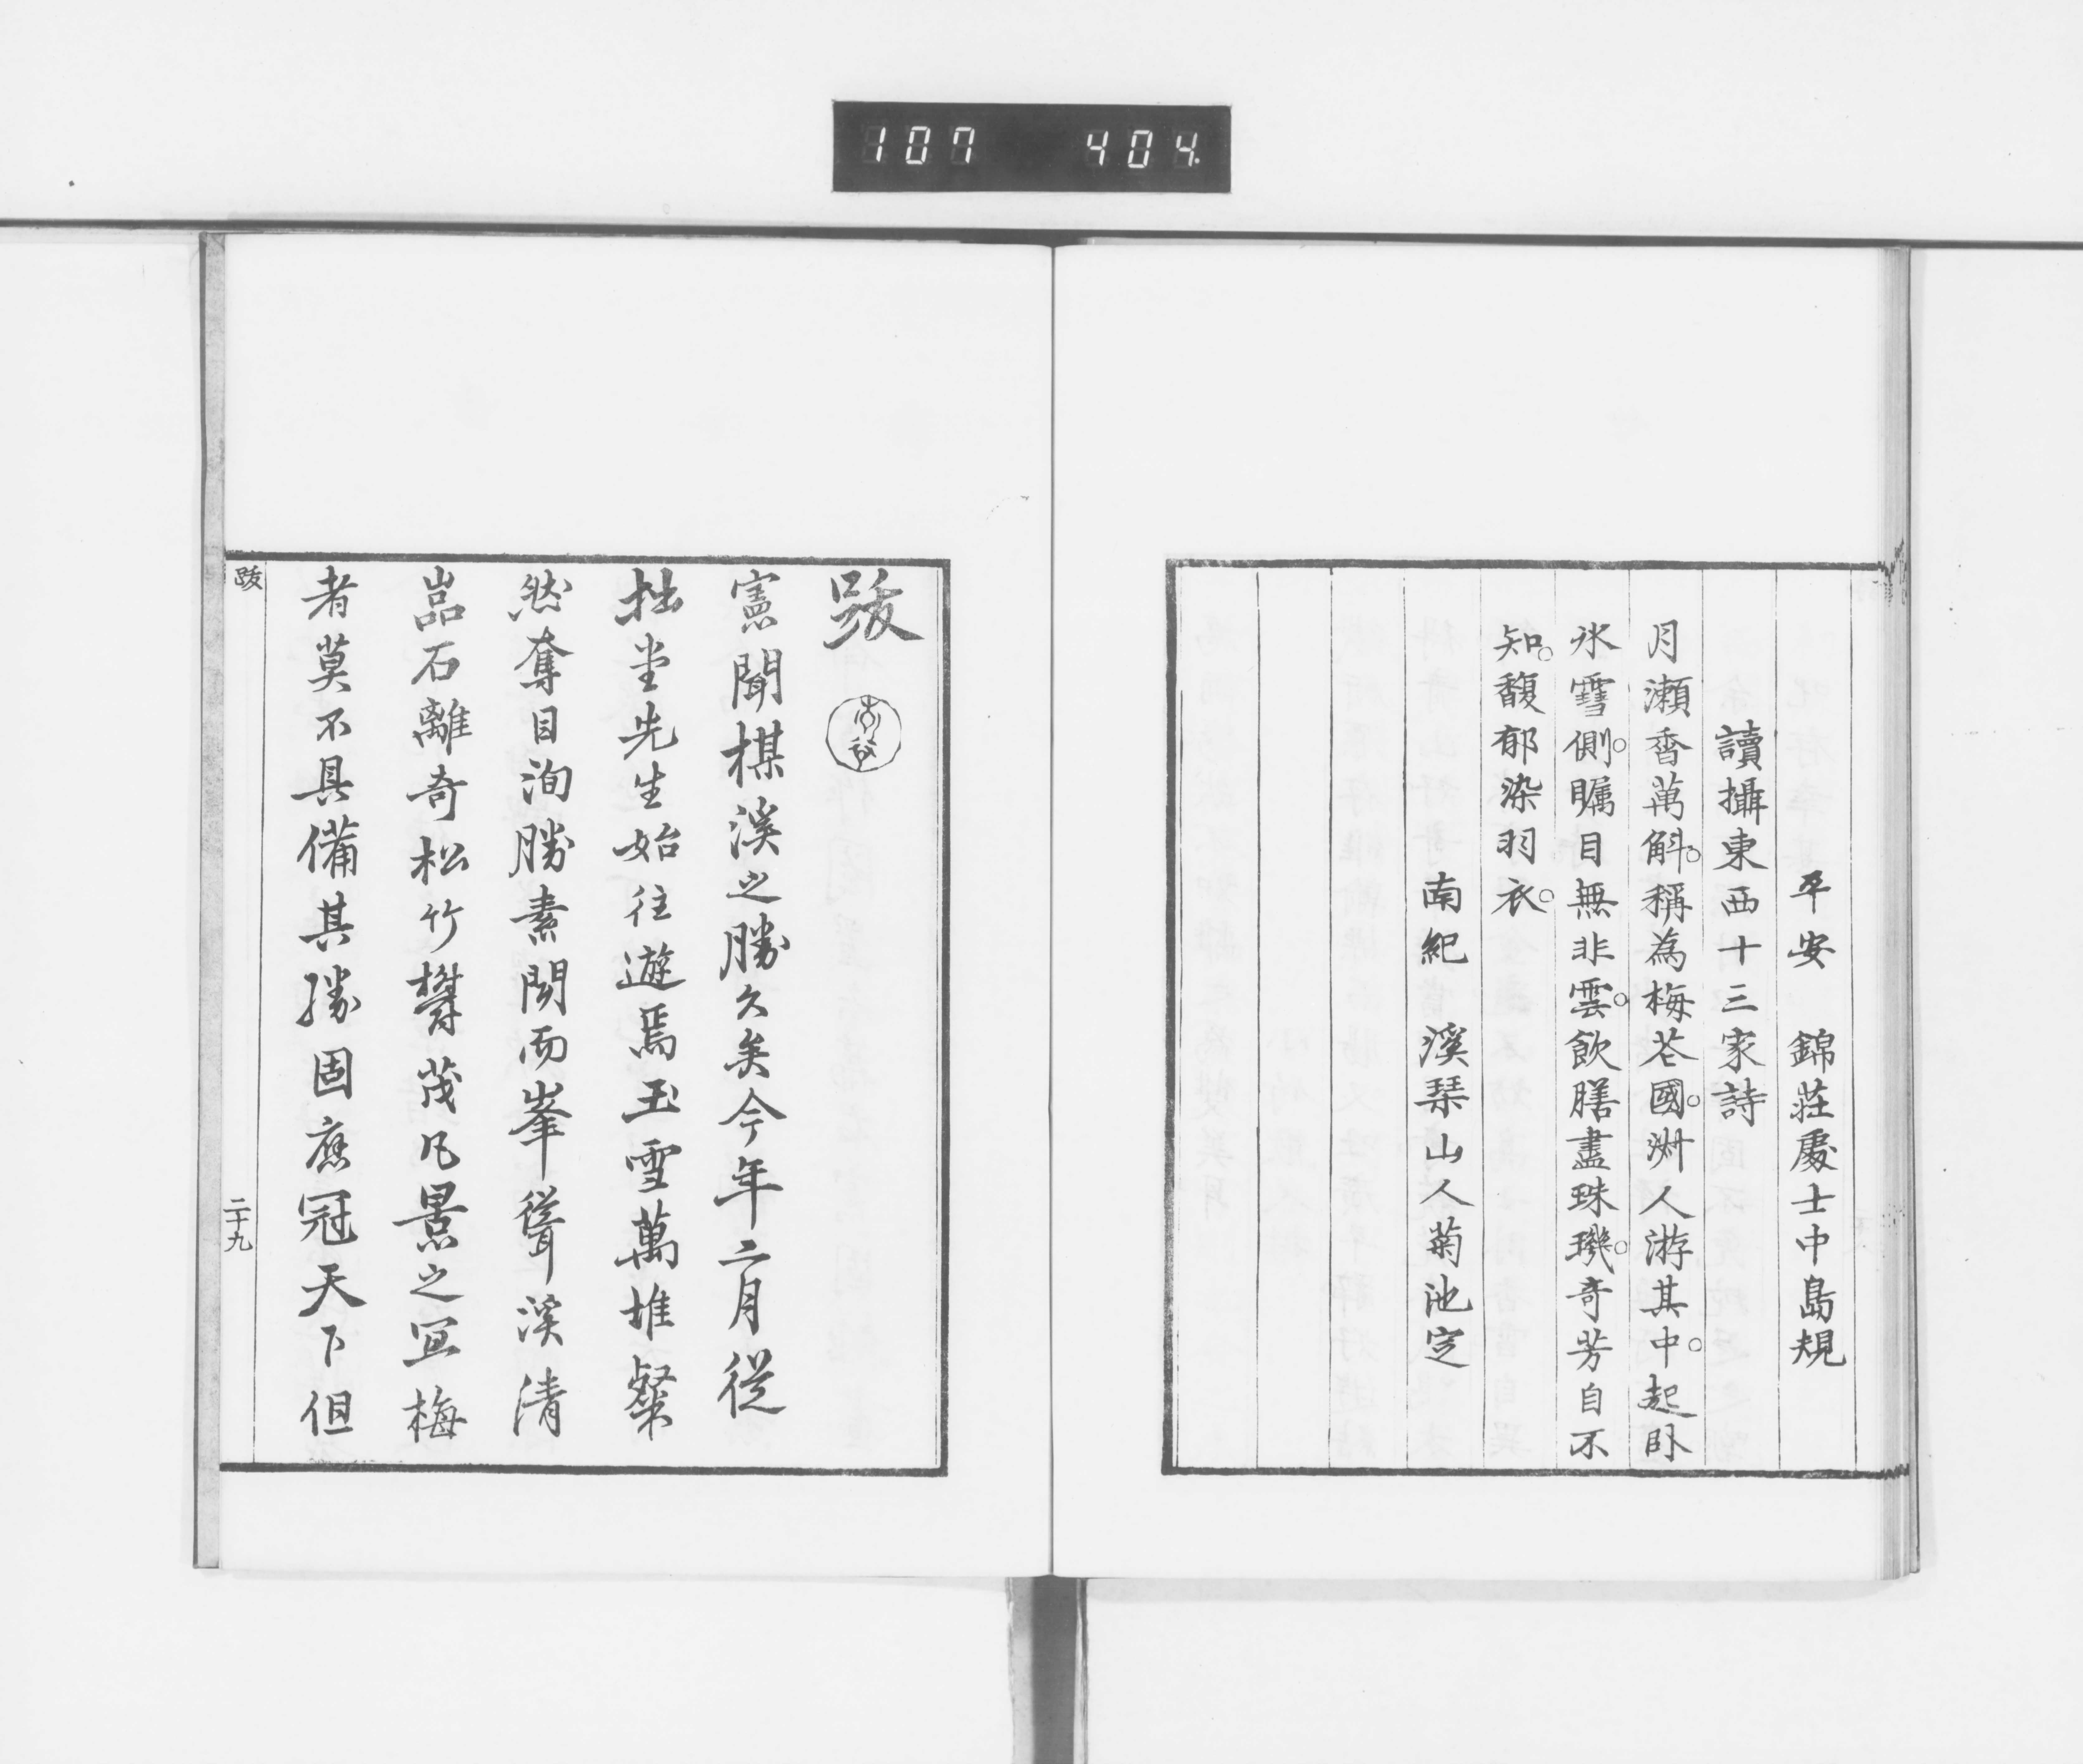 107 404
平安 錦莊處士中島規
讀攝東西十三家詩
月瀬香萬斛稱為梅花國洲人游其中起臥
氷雪側矚目無非雲飲膳盡珠璣奇芳自不
知馥郁染羽衣
南紀 溪琴山人菊池定
跋
憲聞楳溪之勝久矣今年二月從
拙堂先生始往遊焉玉雪萬堆粲
然奪目洵勝素聞而峯聳溪清
嵓石離奇松竹欝茂凡景之宜梅
者莫不具備其勝固應冠天下但
跋
二十九